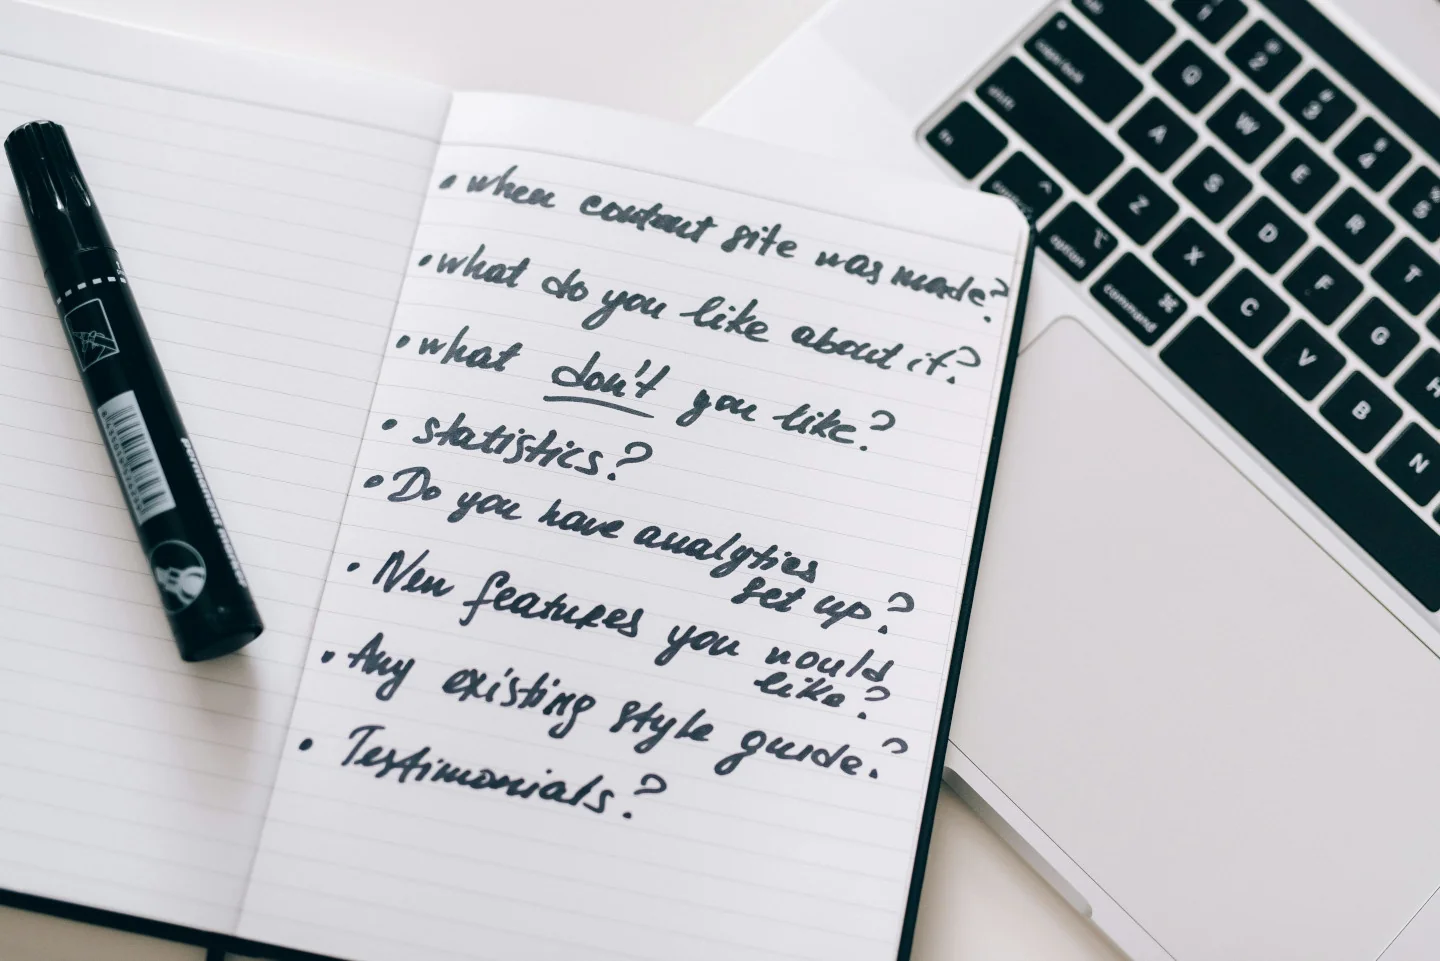 • when content site was made?
• what do you like about it?
• what don't you like?
• statistics?
• Do you have analytics
set up?
• New features you would
like?
• Any existing style guide?
• Testimonials?
permanent marker
tab
caps lock
shift
fn
control
option
command
1
2
3
4
5
Q
W
E
R
T
A
S
D
F
G
H
Z
X
C
V
B
N